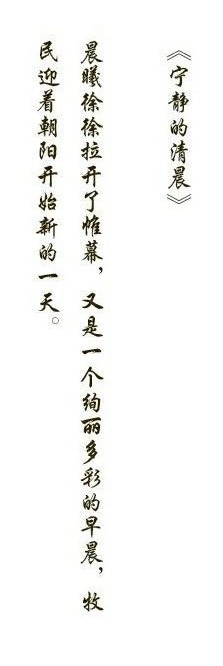 《宁静的清晨》
晨曦徐徐拉开了帷幕，又是一个绚丽多彩的早晨，牧
民迎着朝阳开始新的一天。